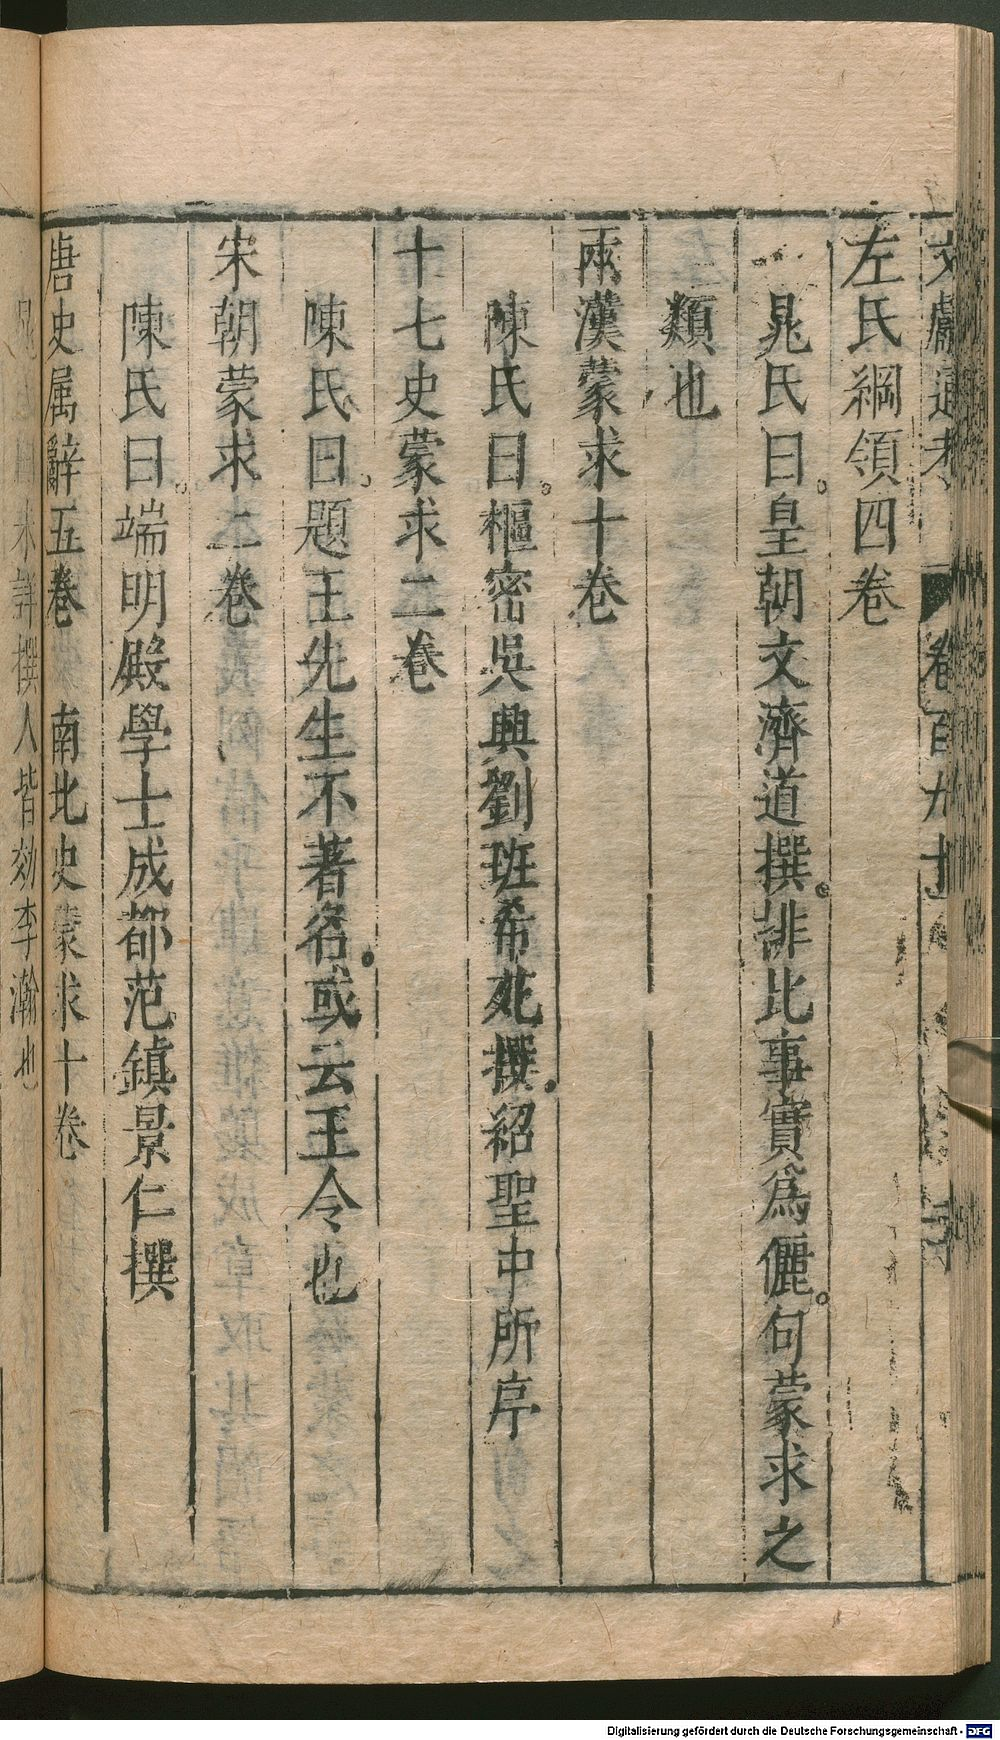 文獻通考 卷百九十
左氏綱領四卷
晁氏曰皇朝文濟道撰誹比事實爲儷句蒙求之
類也
兩漢蒙求十卷
陳氏曰樞密吳興劉班希范撰紹聖中所序
十七史蒙求二卷
陳氏曰題王先生不著名或云王令也
宋朝蒙求二卷
陳氏曰端明殿學士成都范鎮景仁撰
唐史属辭五卷 南北史蒙求十卷
未詳撰人皆効李瀚也
Digitalisierung gefördert durch die Deutsche Forschungsgemeinschaft - DFG